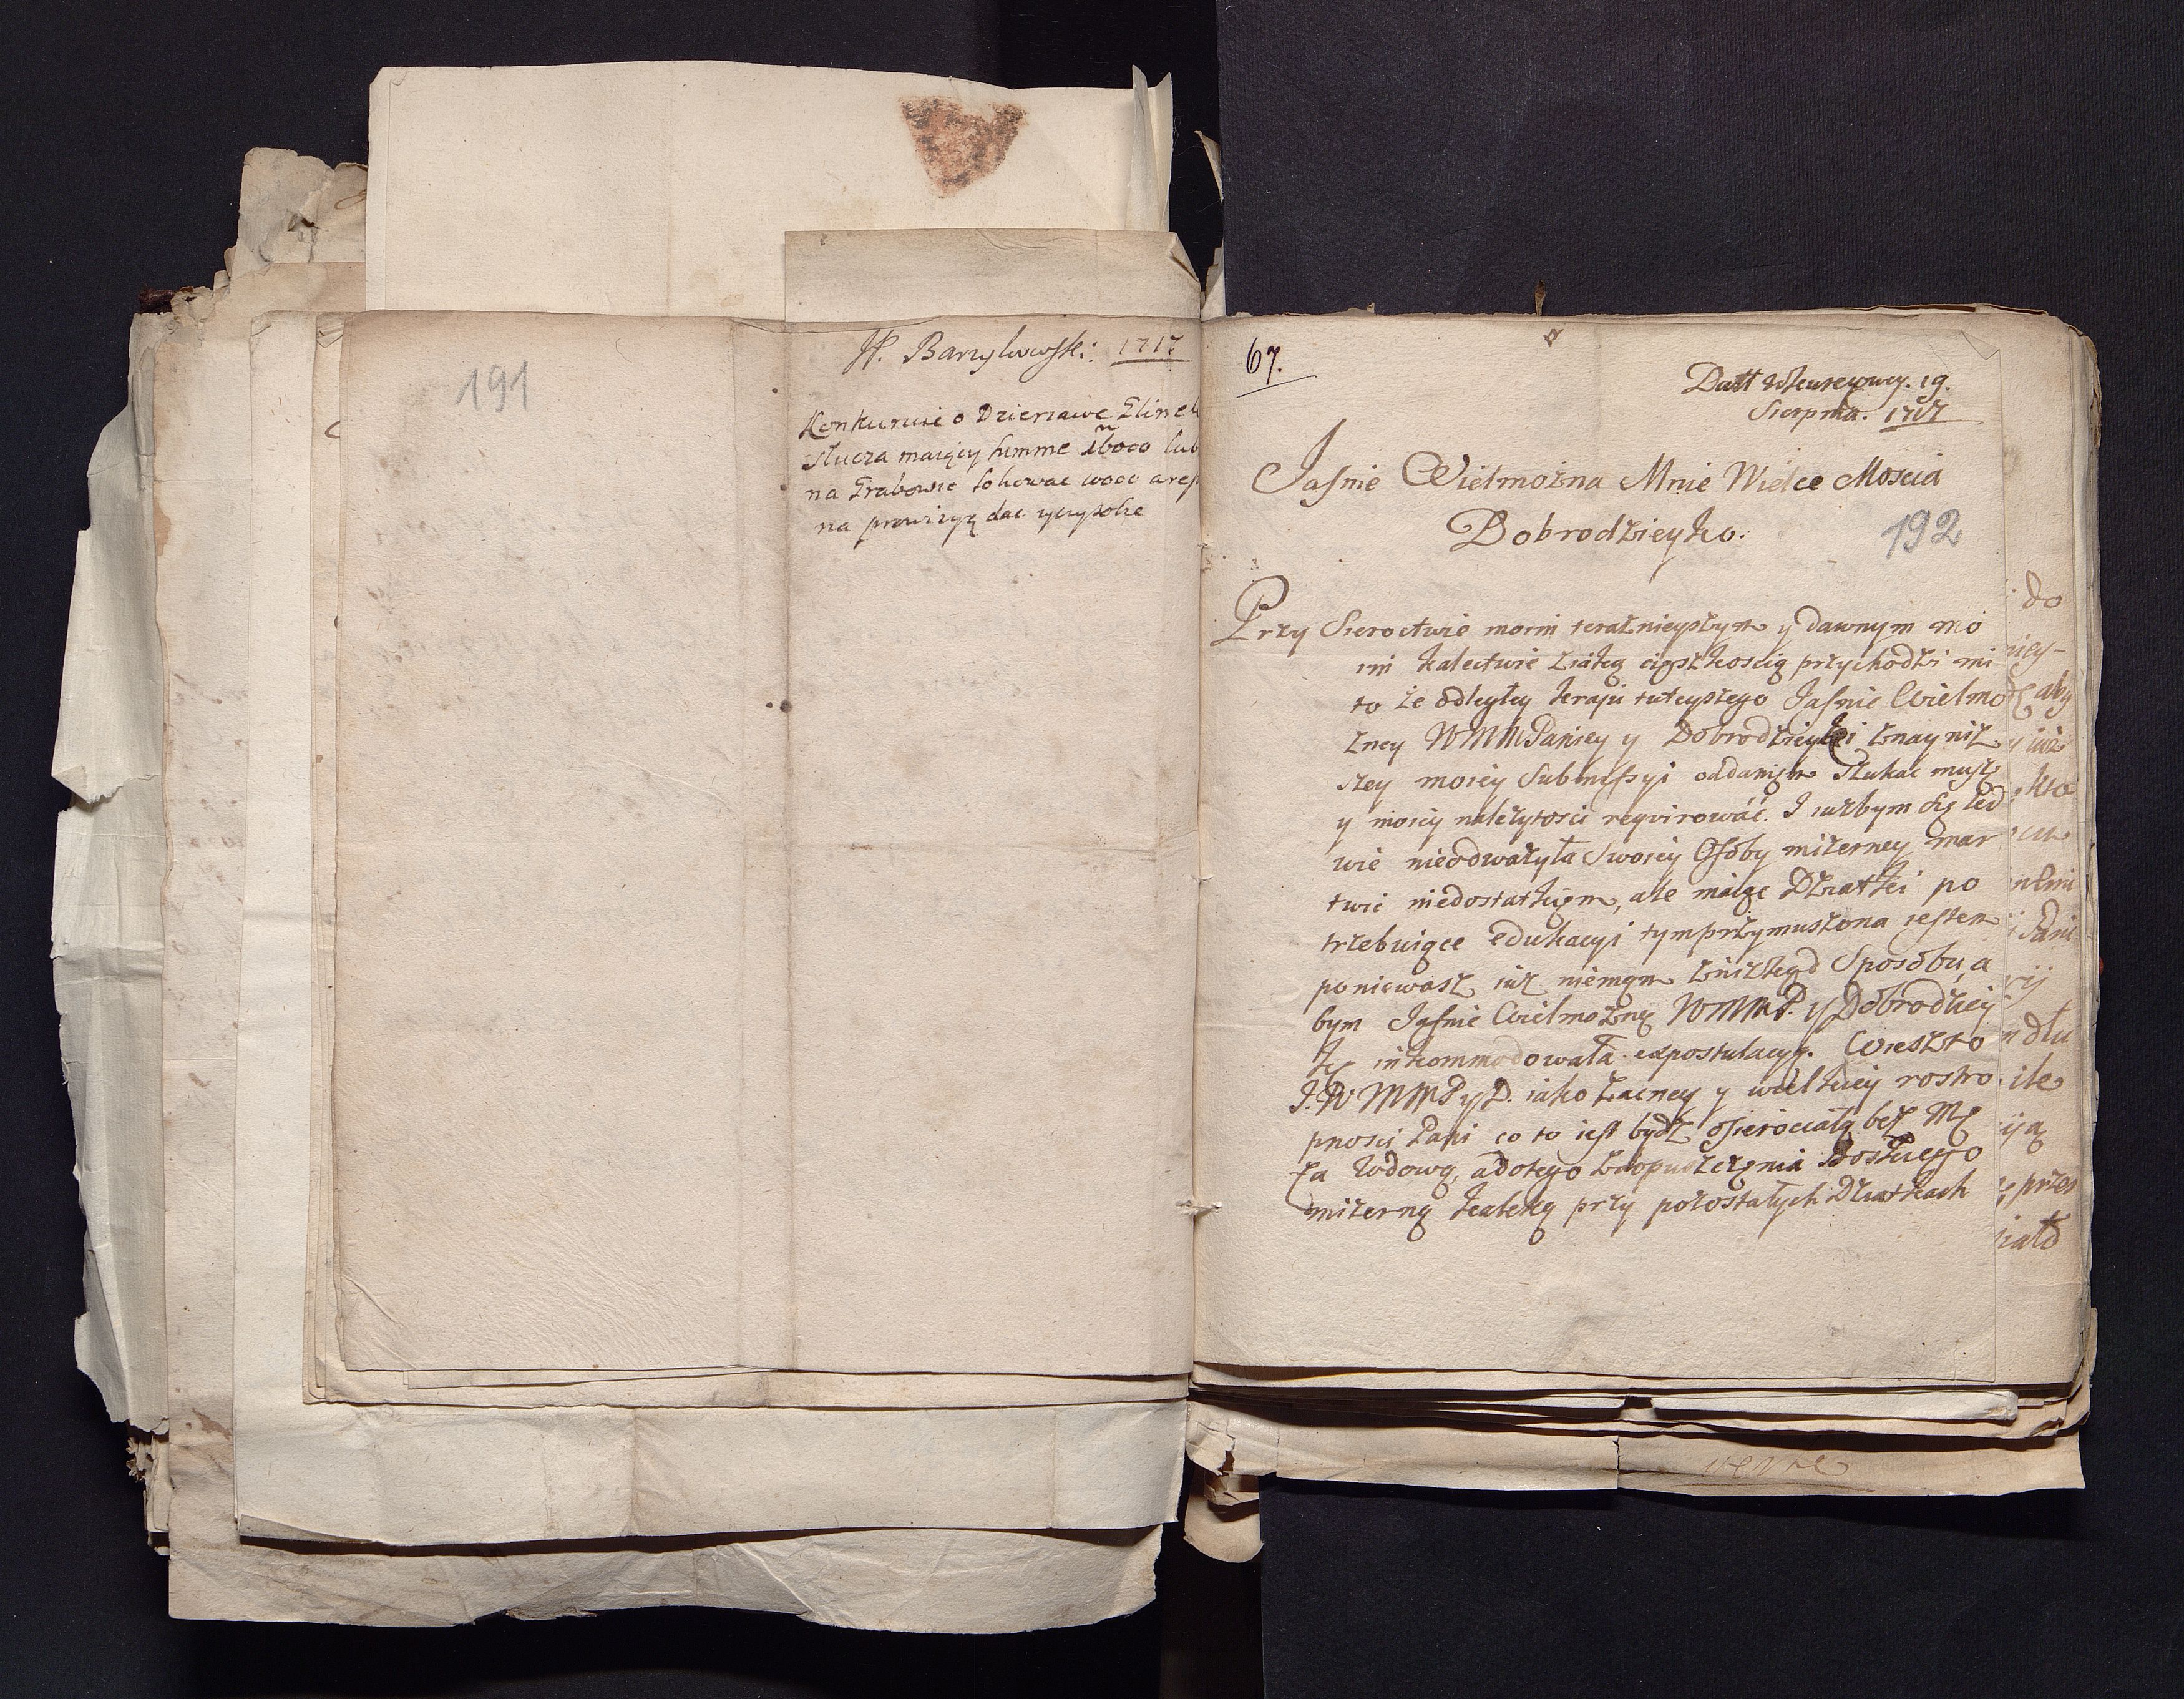 191
JP. Barzykowski: 1717
Konkuruie o Dzierzawe
Słucza maiący summe 16000 lub
na Grabowie lokowac 10000 a resz
na prowizyą dac
67.
Datt 19.
Sierpnia. 1717
Jasnie Wielmożna Mnie Wielce Moscia
Dobrodzieyko.
192
Przy Sieroctwie moim teraznieyszym y dawnym mo
im kalectwie z iaką cięszkoscią przychodzi mi
to że odległey kraju tuteyszego Jasnie Wielmo
zney WMMPaniey y Dobrodzieyki z nayniz
szey moiey Submissyi oddaniem szukac muszę
y moiey należytosci reqvirowáć. I iużbym się led
wie nieodważyła Swoiey Osoby mizerney mar
twic niedostatkiem, ale maiąc Dziatki po
trzebuiące edukacyi tym przymuszona iestem
poniewasz iuż niemam znikąd Sposobu, a
bym Jasnie Wielmożną WMMP. y Dobrodziey
kę inkommodowała expostulacyą. Wiesz to
J.W MMP y D. iako zacney y wielkiey rostro
pnosci Pani co to iest bydz osierociałą bez Mę
ża wdową, a do tego z dopuszczenia Boskiego
mizerną kaleką przy pozostałych Dziatkach
do
niey-
aby
iuż
kto
Pani
dłu
ile
przez